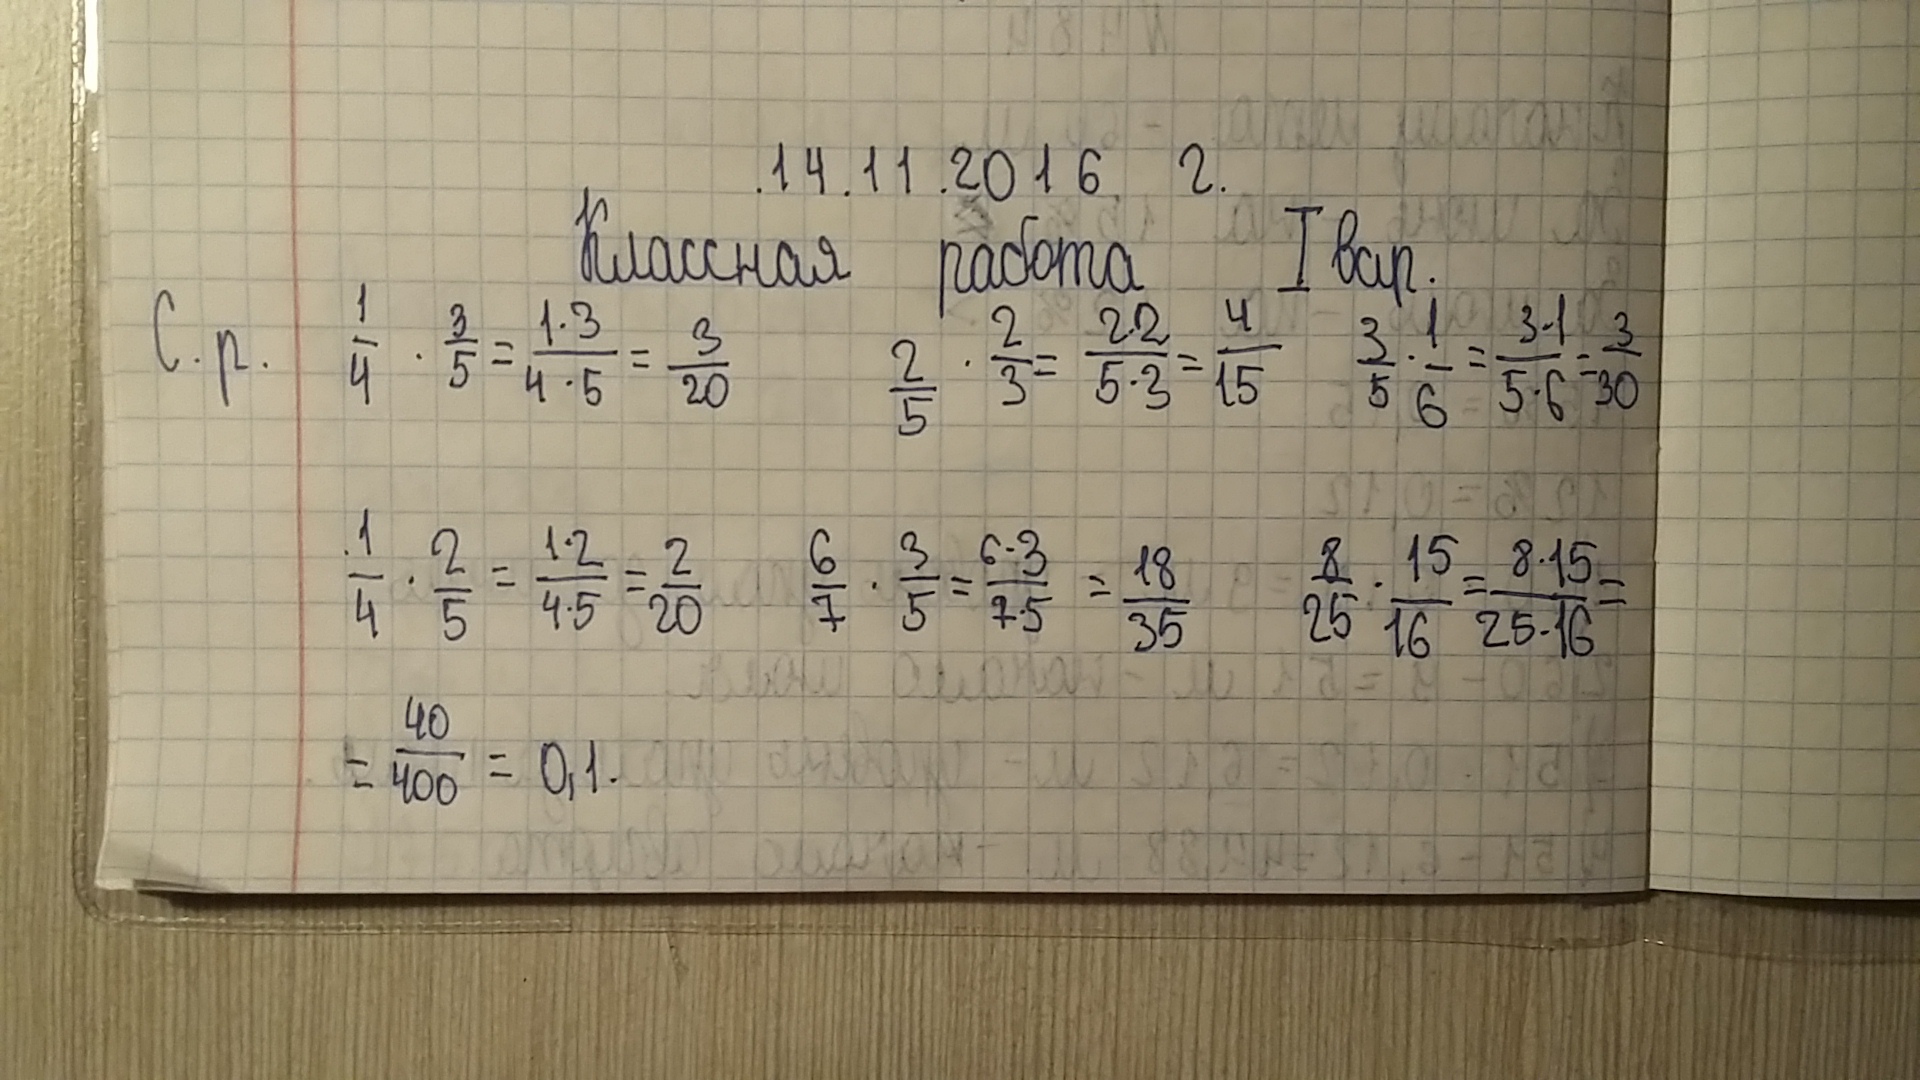 .14.11.2016 г.
Классная работа I вар.
С.р. 1/4 · 3/5 = 1·3/4·5 = 3/20 2/5 · 2/3 = 2·2/5·3 = 4/15 3/5 · 1/6 = 3·1/5·6 = 3/30
.1/4 · 2/5 = 1·2/4·5 = 2/20 6/7 · 3/5 = 6·3/7·5 = 18/35 8/25 · 15/16 = 8·15/25·16 =
= 40/400 = 0,1.